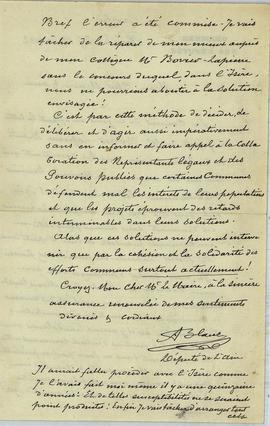 Bref l'erreur a été commise - Je vais
tâcher de la réparer de mon mieux auprès
de mon collègue Mr Borrel-Lapierre
sans le concours duquel, dans l'Isère,
nous ne pourrions aboutir à la solution
envisagée!
C'est par cette méthode de décider, de
délibérer et d'agir aussi impérativement
sans en informer et faire appel à la Colla
boration des Représentants légaux et des
Pouvoirs Publics que certaines Communes
défendent mal les intérêts de leurs populations
et que les projets éprouvent des retards
interminables dans leurs solutions.
Alors que ces solutions ne peuvent interve
nir que par la cohésion et la solidarité des
efforts Communs surtout actuellement!
Croyez, Mon Cher Mr le Maire, à la sincère
assurance renouvelée de mes sentiments
dévoués & cordiaux
A Blanc
Député de l'Ain
Il aurait fallu procéder avec l'Isère comme
je l'avais fait moi même il y a une quinzaine
d'années! Et de telles susceptibilités ne se seraient
point produites! Enfin je vais tâcher d'arranger tout
cela